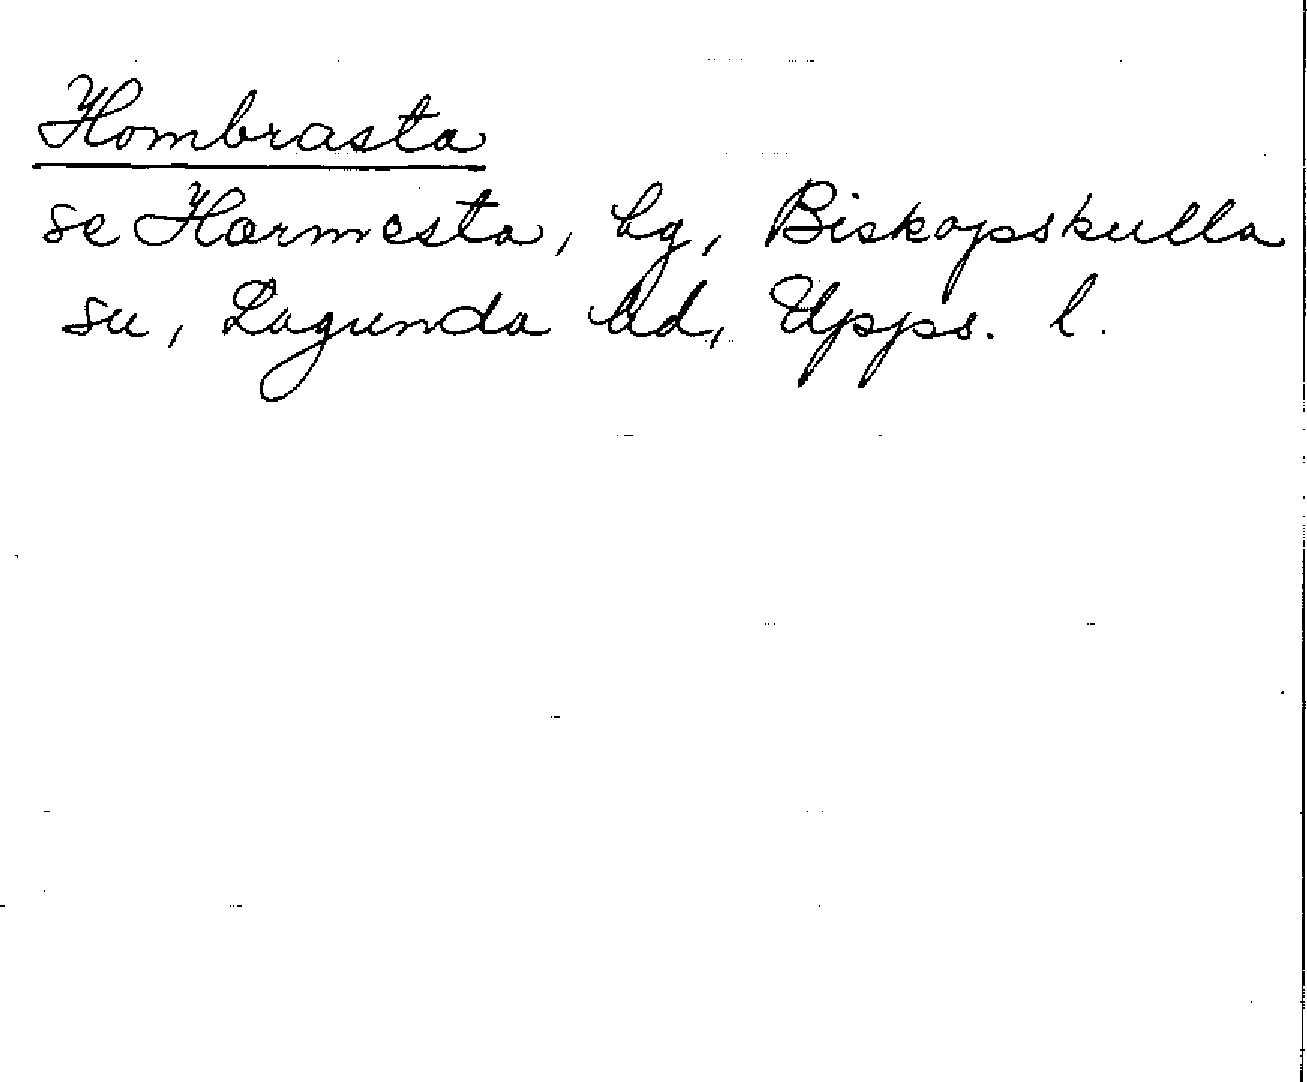 Hombrasta
se Harmesta, by, Biskopskulla
sn, Lagunda hd, Upps. l.